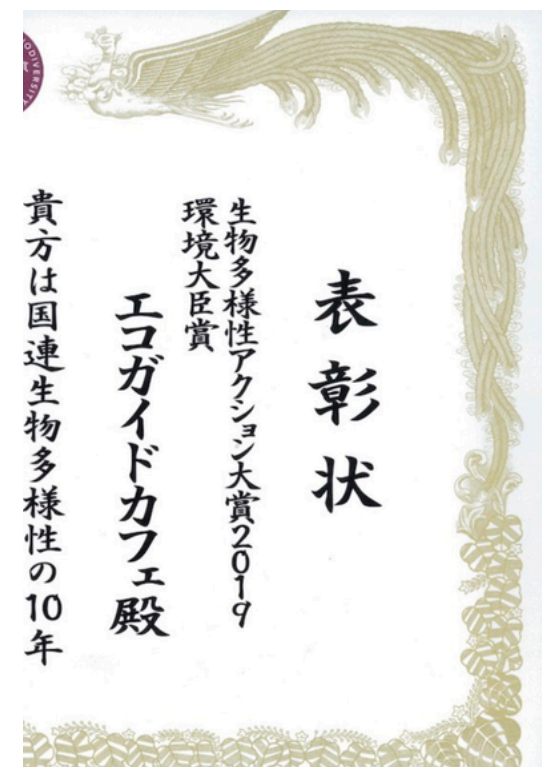 表彰状
生物多様性アクション大賞2019
環境大臣賞
エコガイドカフェ殿
貴方は国連生物多様性の10年